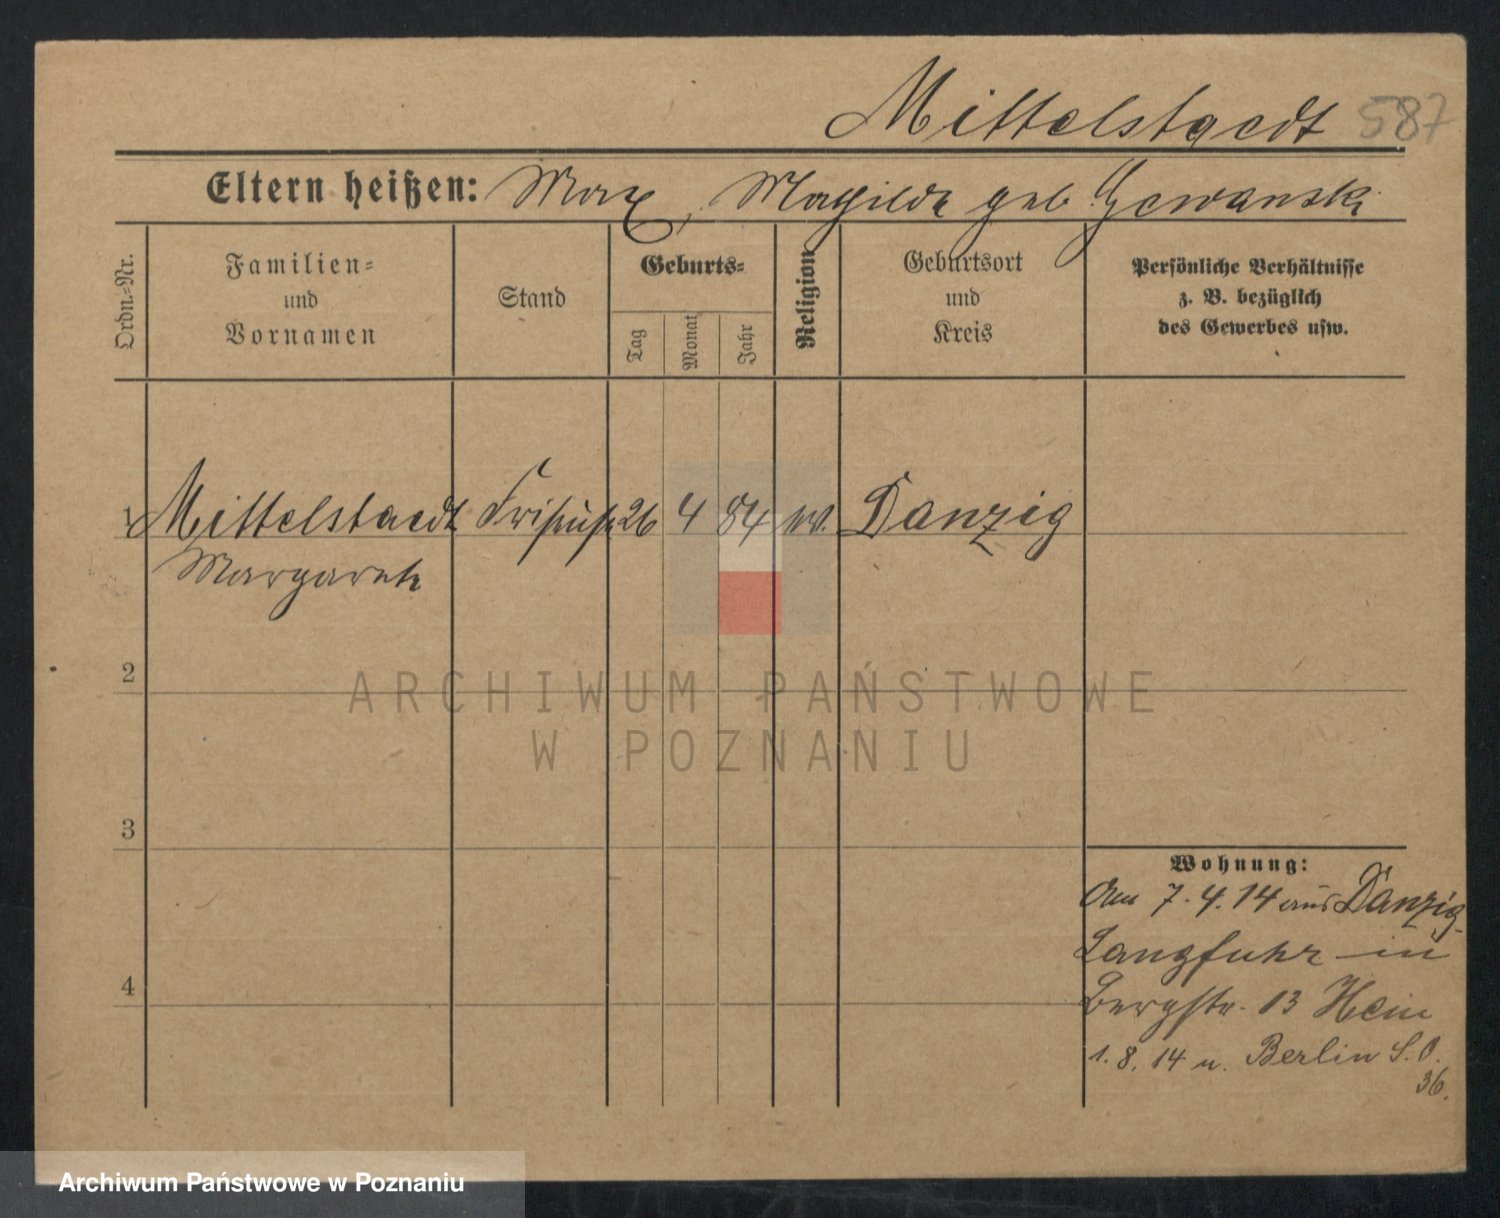 Mittelstaedt 587
Eltern heißen: Max, Mathilde geb
Ordn.=Nr.
Familien=
und
Vornamen
Stand
Geburts=
Tag
Monat
Jahr
Religion
Geburtsort
und
Kreis
Persönliche Verhältnisse
z. B. bezüglich
des Gewerbes usw.
1 Mittelstaedt 26 4 84 Danzig
Margarete
2
3
4
Wohnung:
Am 7.4.14 aus Danzig-
Langfuhr in
Bergstr. 13 Hein
1.8.14 n. Berlin S.O.
36.
ARCHIWUM PAŃSTWOWE
W POZNANIU
Archiwum Państwowe w Poznaniu